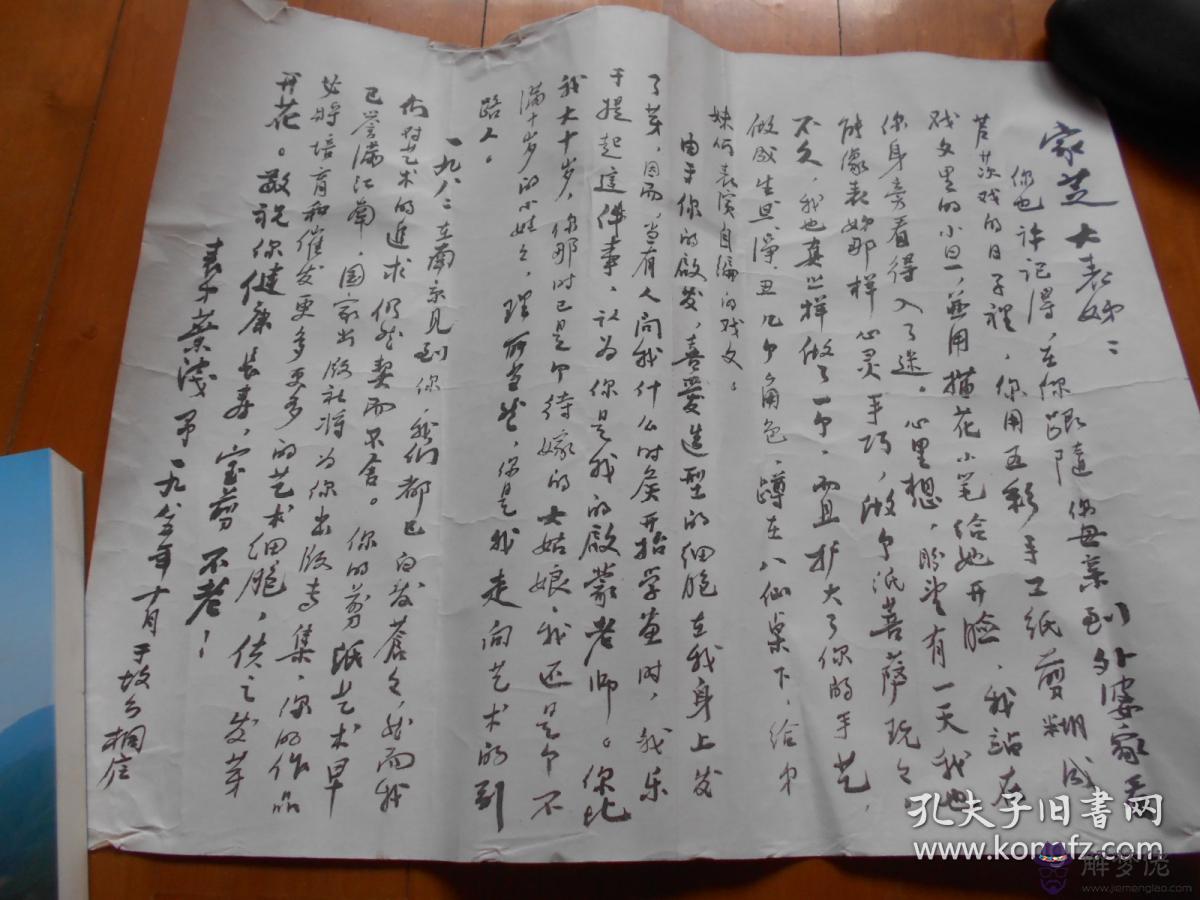 家芝大表姊：
你也许记得，在你跟随你母亲到外婆家看
芦茨戏的日子裡，你用五彩手工纸剪糊成
戏文里的小旦，并用描花小笔给她开脸，我站在
你身旁看得入了迷。心里想，盼望有一天我也
能像表姊那样心灵手巧，做个泥菩萨玩玩。
不久，我也真照样做了一个，而且扩大了你的手艺，
做成生旦、净、丑几个角色，蹲在八仙桌下，给弟
妹们表演自编的戏文。
由于你的启发，喜爱造型的细胞在我身上发
了芽，因而，当有人问我什么时候开始学画时，我乐
于提起这件事，认为你是我的启蒙老师。你比
我大十岁，你那时已是个待嫁的大姑娘，我还是个不
满十岁的小娃娃，理所当然，你是我走向艺术的引
路人。
一九八二在南京见到你，我们都已白发苍苍，然而我
们对艺术的追求仍然契而不舍。你的剪纸艺术早
已誉满江南，国家出版社将为你出版专集，你的作品
必将培育和催发更多更多的艺术细胞，使之发芽
开花。敬祝你健康长寿，宝剪不老！
表弟叶浅予一九八五年十月于故乡桐庐
孔夫子旧书网
www.kongfz.com
解梦佬
www.jiemenglao.com